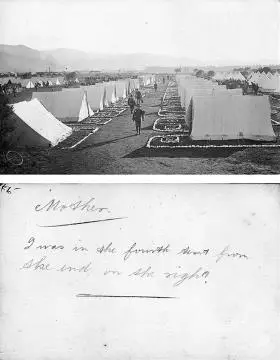 Mother.
I was in the fourth tent from
the end, on the right.